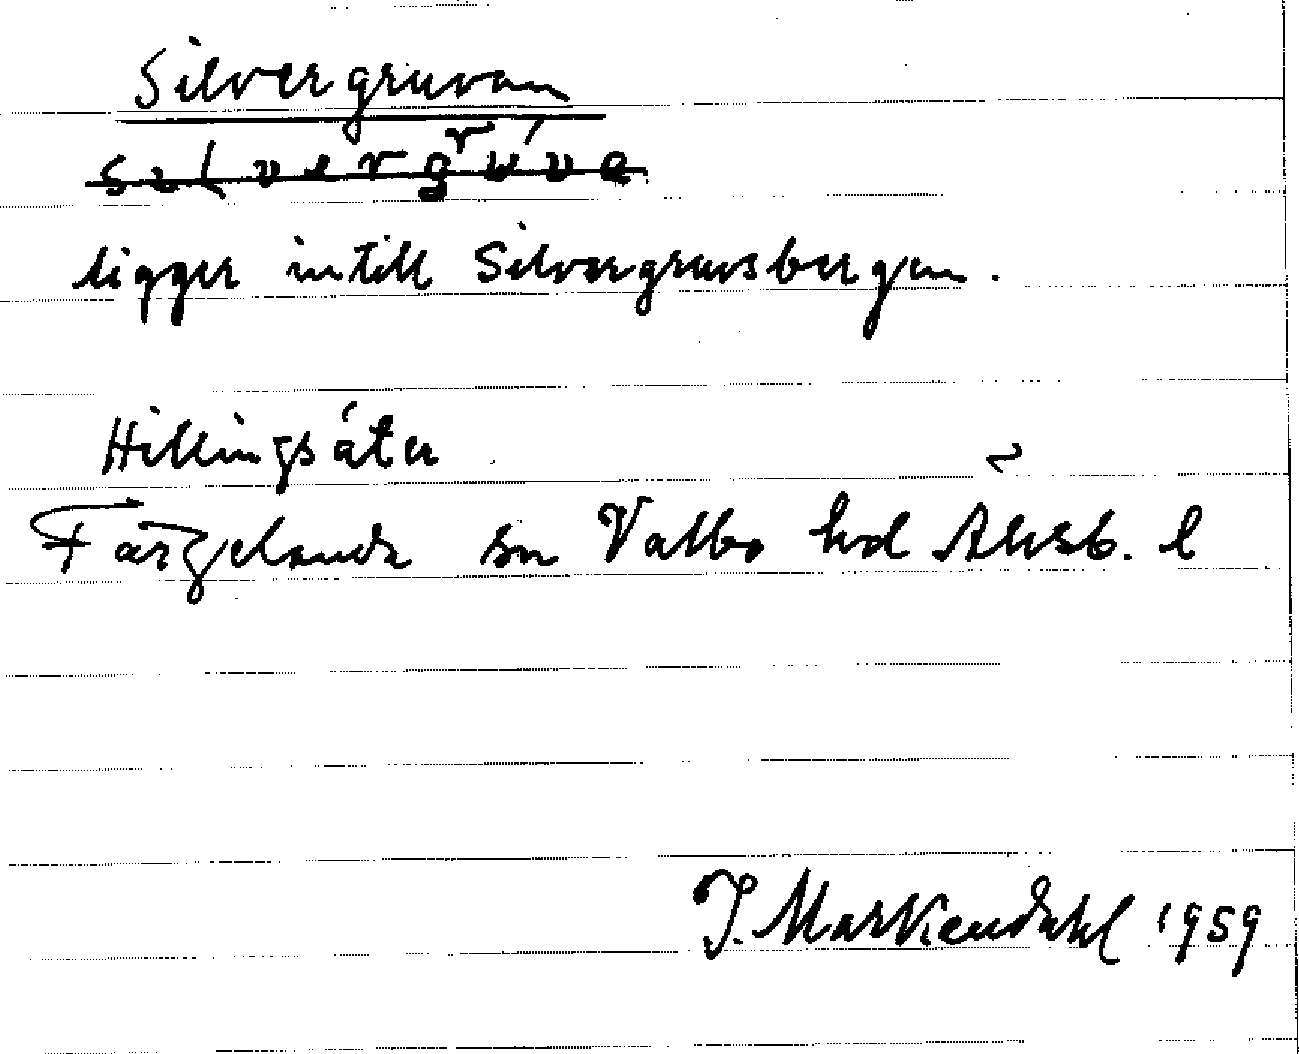 Silvergruvan
silvergrúva
ligger intill Silvergruvsbergen.
Hillingsäter
Färgelanda sn Valbo hd Älvsb. l
J. Markendahl 1959